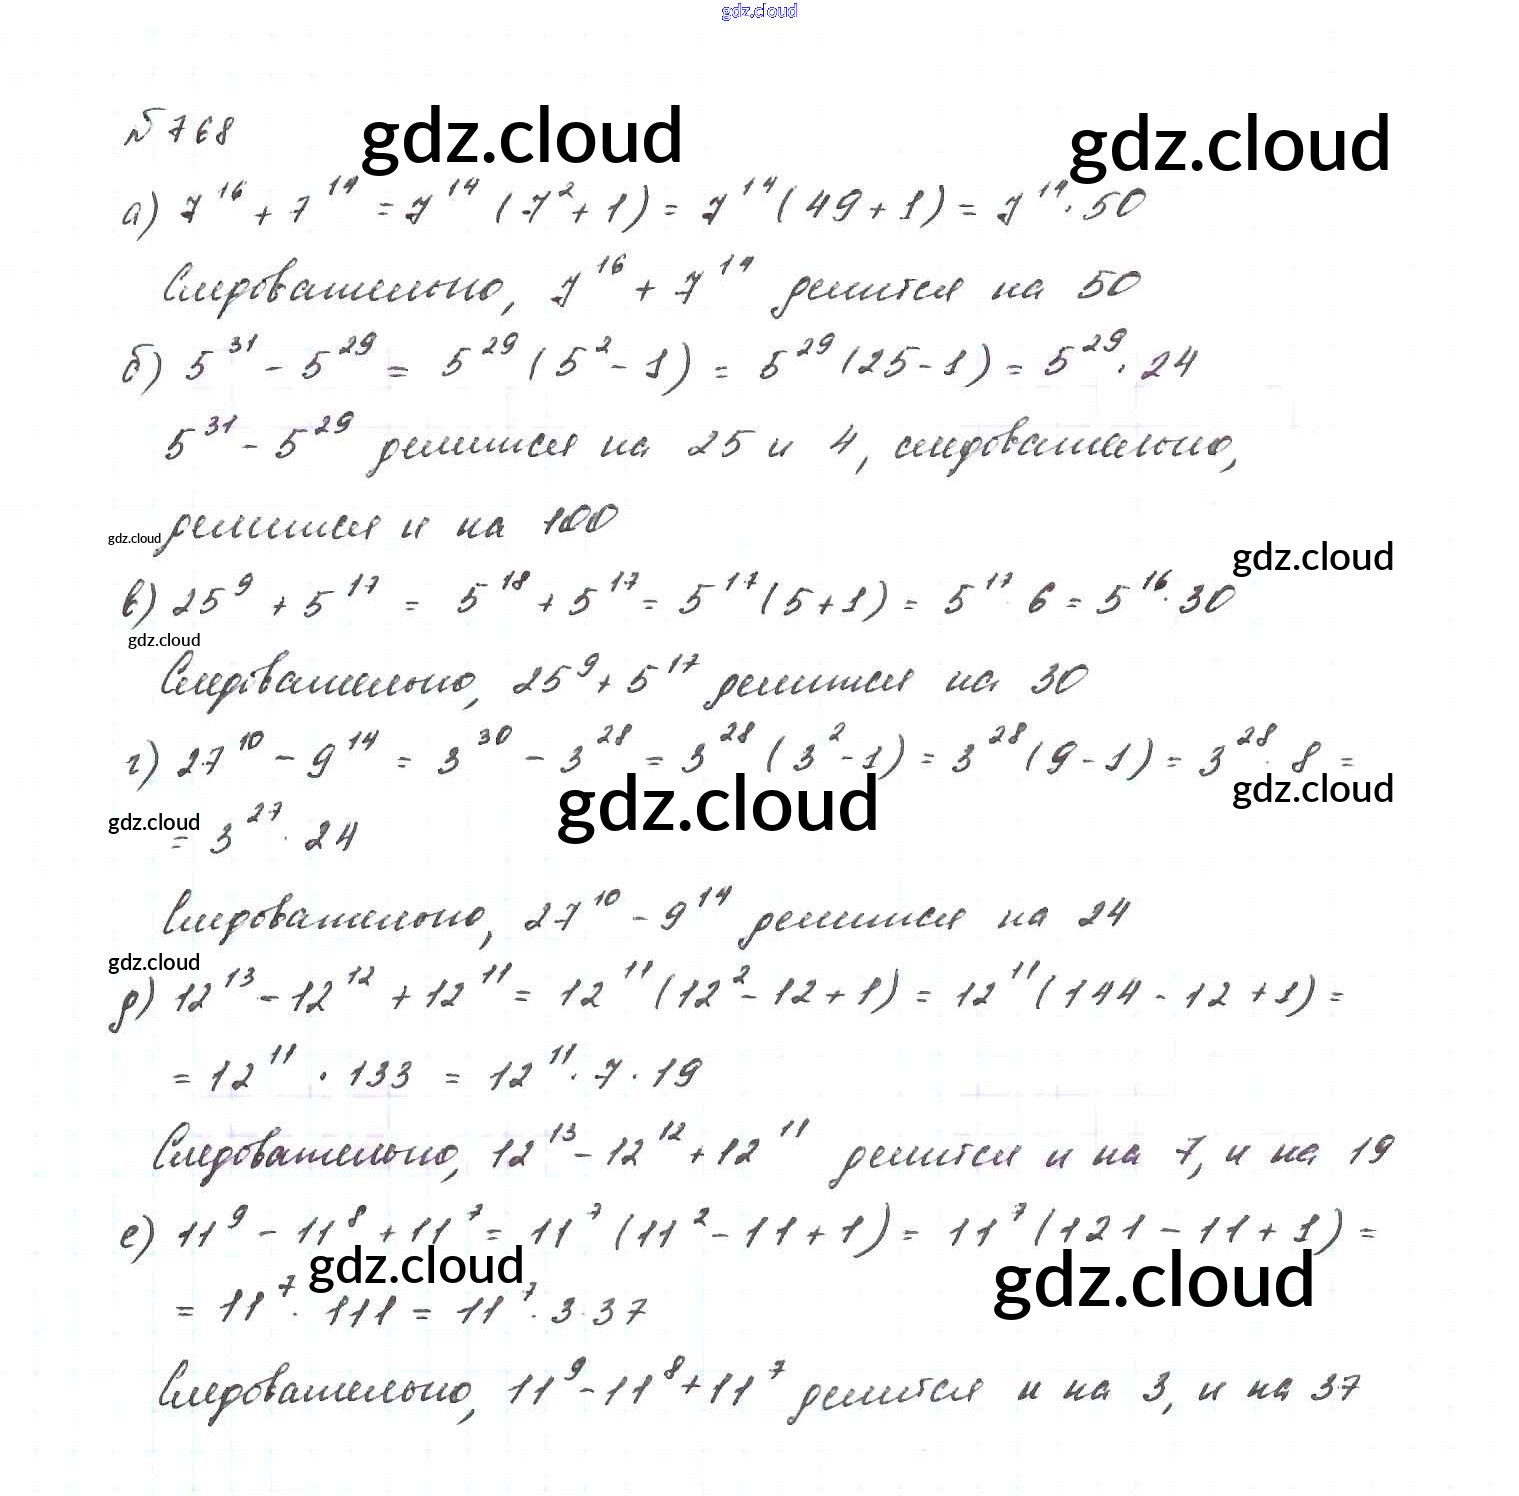 gdz.cloud
№ 768
gdz.cloud
gdz.cloud
а) 7^16 + 7^14 = 7^14 (7^2 + 1) = 7^14 (49 + 1) = 7^14 · 50
Следовательно, 7^16 + 7^14 делится на 50
б) 5^31 - 5^29 = 5^29 (5^2 - 1) = 5^29 (25 - 1) = 5^29 · 24
5^31 - 5^29 делится на 25 и 4, следовательно,
делится и на 100
gdz.cloud
gdz.cloud
в) 25^9 + 5^17 = 5^18 + 5^17 = 5^17 (5 + 1) = 5^17 · 6 = 5^16 · 30
gdz.cloud
Следовательно, 25^9 + 5^17 делится на 30
г) 27^10 - 9^14 = 3^30 - 3^28 = 3^28 (3^2 - 1) = 3^28 (9 - 1) = 3^28 · 8 =
gdz.cloud
gdz.cloud
gdz.cloud
= 3^27 · 24
Следовательно, 27^10 - 9^14 делится на 24
gdz.cloud
д) 12^13 - 12^12 + 12^11 = 12^11 (12^2 - 12 + 1) = 12^11 (144 - 12 + 1) =
= 12^11 · 133 = 12^11 · 7 · 19
Следовательно, 12^13 - 12^12 + 12^11 делится и на 7, и на 19
е) 11^9 - 11^8 + 11^7 = 11^7 (11^2 - 11 + 1) = 11^7 (121 - 11 + 1) =
gdz.cloud
gdz.cloud
= 11^7 · 111 = 11^7 · 3 · 37
Следовательно, 11^9 - 11^8 + 11^7 делится и на 3, и на 37